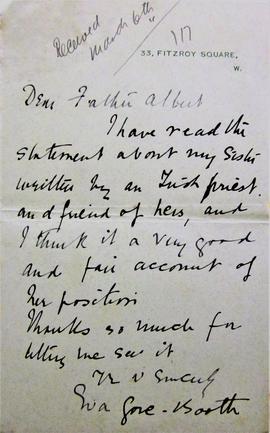 Received
March 6th
1/7
33, FITZROY SQUARE,
W.
Dear Father Albert
I have read the
statement about my Sister
written by an Irish priest
and friend of hers, and
I think it a very good
and fair account of
her position
Thanks so much for
letting me see it
Yr v Sincerely
Eva Gore-Booth